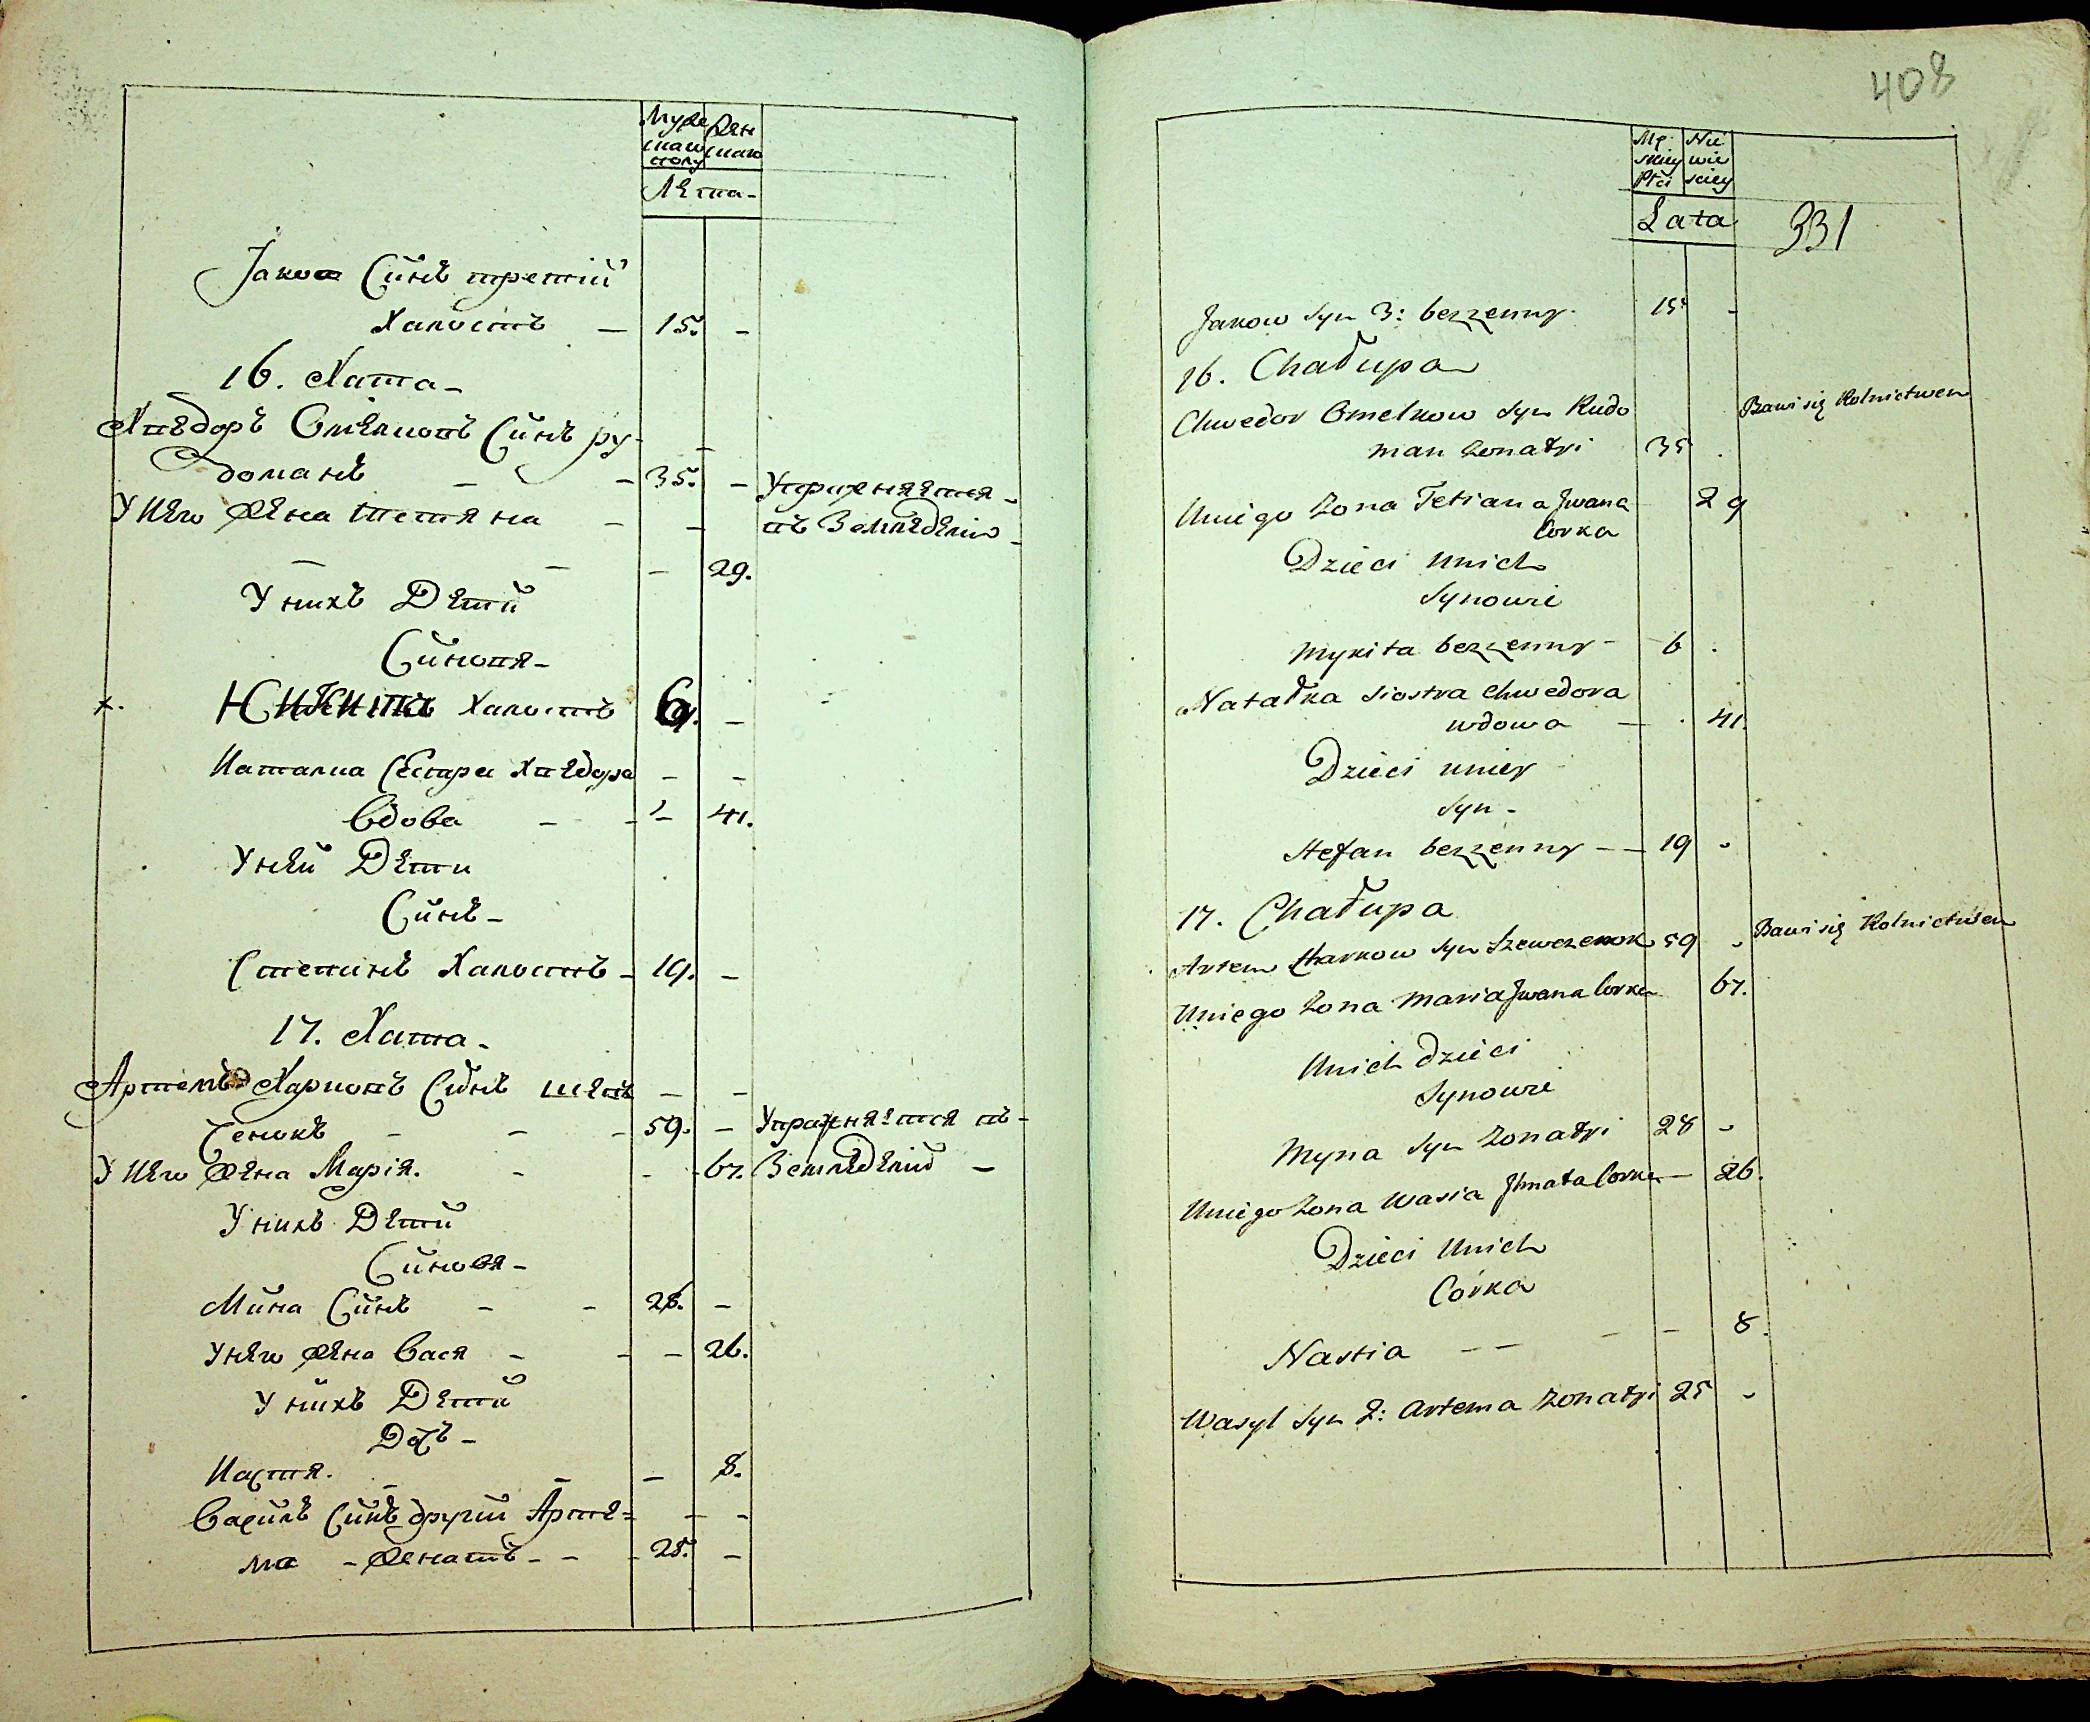 Муже
Жен
скаго
скаго
полу
Лѣта-
Јаков Синъ третій
Халостъ — 15. -
16. Хата-
Хвѣдоръ Омѣлковъ Синъ ру-
доманъ - - 35. - Упражняется -
У Нѣго Жѣна тетяна - - въ Земледѣлію -
- - - 29.
У нихъ Дѣтй
Синовя-
х. Никита Халостъ 6. -
Наталка Сѣстра Хвѣдора - -
Вдова - - - 41.
У нѣй Дѣти
Синъ-
Степанъ Халостъ - 19. -
17. Хата-
Артемъ Харковъ Синъ шѣв - -
Ченокъ - - - 59. - Упражняется въ -
У Нѣго Жѣна Марія. - - - 67. Земледѣлій -
У нихъ Дѣтй
Синовя-
Мина Синъ - - 28. -
У нѣго Жѣна Вася - - - 26.
У нихъ Дѣтй
Дочъ-
Настя. - - - 8.
Василъ Синъ другій Артѣ= - -
ма - Женатъ - - - 25. -
408
Mę
Nie
skiey
wie
Płci
sciey
Lata
331
Jakow Syn 3: bezzenny. 15. -
16. Chałupa
Chwedor Omelkow Syn Rudo Bawi się Rolnictwem
man zonatyi 35 .
Uniego Zona Tetiana Jwana 29
Corka
Dzieci Unich
Synowie
Mykita bezzenny - 6 .
Natałka Siostra Chwedora
wdowa - . 41.
Dzieci uniey
Syn -
Stefan bezzenny - - 19 -
17. Chałupa
Artem Charkow Syn Szewczenok 59 - Bawi się Rolnictwem
Uniego Zona Maria Jwana Corka 67.
Unich Dzieci
Synowie
Myna Syn Zonatyi 28 -
Uniego Zona Wasia Jhnata Corka - 26.
Dzieci Unich
Corka
Nastia - - - - 8.
Wasyl Syn 2: Artema Zonatyi 25 -